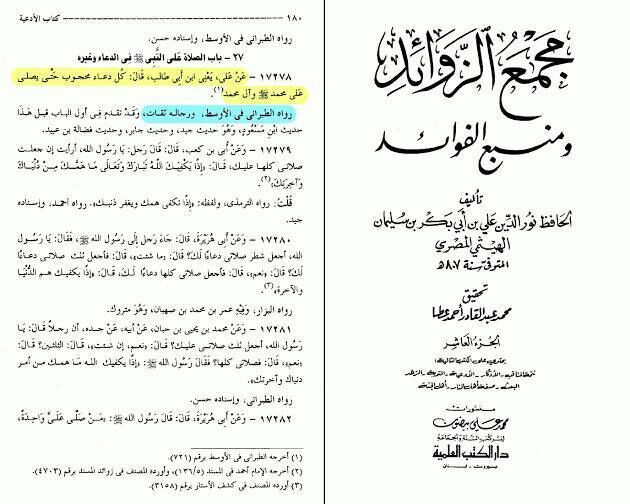 ١٨٠ ــــــــــــــــــــــــــــــــ كتاب الأدعية
رواه الطبرانى فى الأوسط، وإسناده حسن.
٢٧ – باب الصلاة على النَّبِي ﷺ فِى الدعاء وغيره
١٧٢٧٨ – عَنْ عَلى، يَعْنِى ابن أَبِى طالب، قَالَ: كُل دعاء محجوب حَتَّى يصلى
على محمد ﷺ وآل محمد(١).
رواه الطبرانى فى الأوسط، ورجاله ثقات، وَقَدْ تقدم فِى أول الباب قبل هَذَا
حديث ابْنِ مَسْعُودٍ، وَهُوَ حديث جيد، وحديث جابر، وحديث فضالة بن عبيد.
١٧٢٧٩ – وَعَنْ أُبى بن كعب، قَالَ: قَالَ رَجل: يَا رَسُول الله، أرأيت إن جعلت
صلاتى كلها عليك، قَالَ: «إِذًا يَكْفِيَكَ اللهُ تَبَارَكَ وَتَعَالَى مَا هَمَّكَ مِنْ دُنْيَاكَ
وَآخِرَتِكَ»(٢).
قُلْتُ: رواه الترمذى، ولفظه: «إِذًا تكفى همك ويغفر ذنبك». رواه أحمد، وإسناده
جيد.
١٧٢٨٠ – وَعَنْ أَبِى هُرَيْرَةَ، قَالَ: جَاءَ رَجل إلَى رَسُول الله ﷺ، فَقَالَ: يَا رَسُولَ
الله، أجعل شطر صلاتى دعاءًا لَكَ؟ قال: «ما شئت»، قال: فأجعل ثلث صلاتى دعاءًا
لَكَ؟ قَالَ: «نعم»، قَالَ: فأجعل صلاتى كلها دعاءًا لَكَ، قَالَ: «إِذًا يكفيك هم الدُّنْيَا
والآخرة»(٣).
رواه البزار، وَفِيهِ عمر بن محمد بن صهبان، وَهُوَ متروك.
١٧٢٨١ – وَعَنْ محمد بن يحيى بن حبان، عَنْ أبيه، عَنْ جده، أن رجلاً قَالَ: يَا
رَسُول الله، أجعل ثلث صلاتى عليك؟ قَالَ: «نعم، إن شئت»، قال: الثلثين؟ قَالَ:
«نعم»، قَالَ: فصلاتى كلها؟ فَقَالَ رَسُول الله ﷺ: «إِذًا يكفيك الله ما همك من أمر
دنياك وآخرتك».
رواه الطبرانى، وإسناده حسن.
١٧٢٨٢ – وَعَنْ أَبِى هُرَيْرَةَ، قَالَ: قَالَ رَسُول الله ﷺ: «مَنْ صَلَّى عَلَىَّ وَاحِدَةً،
(١) أخرجه الطبرانى فى الأوسط برقم (٧٢١).
(٢) أخرجه الإمام أحمد فى المسند (١٣٦/٥)، وأورده المصنف فى زوائد المسند برقم (٤٧٠٣).
(٣) أورده المصنف فى كشف الأستار برقم (٣١٥٨).
مجمع الزوائد
ومنبع الفوائد
تأليف
الحافظ نور الدين علي بن أبي بكر بن سليمان
الهيثمي المصري
المتوفى سنة ٨٠٧ هـ
تحقيق
محمد عبد القادر أحمد عطا
الجزء العاشر
يحتوي على الكتب التالية:
تتمة المناقب - الأذكار - الأدعية - التوبة - الزهد
البعث - صفة أهل النار - أهل الجنة
منشورات
محمد علي بيضون
لنشر كتب السنة والجماعة
دار الكتب العلمية
بيروت - لبنان